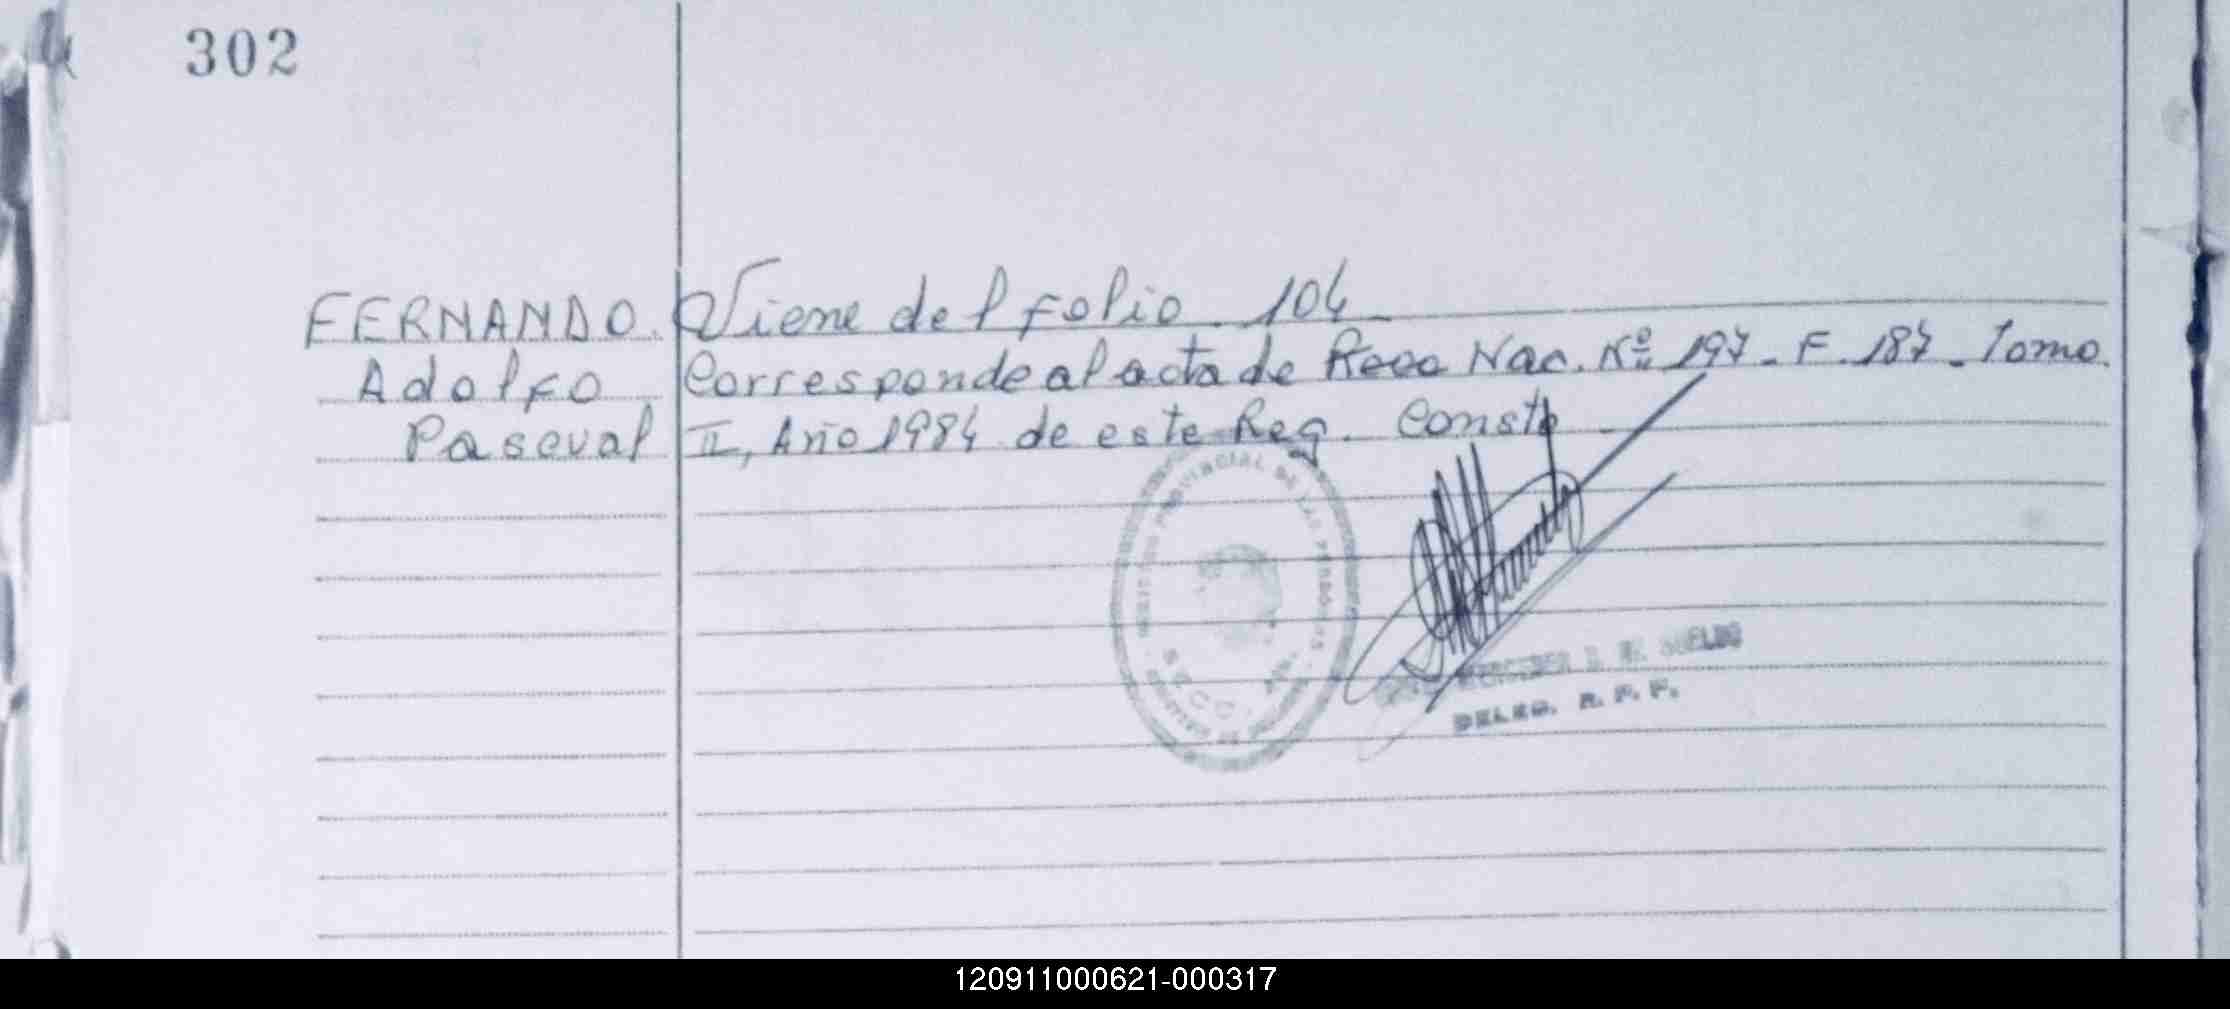 302
FERNANDO. Viene del folio 104
Adolfo Corresponde al acta de Reco Nac. Nº 197 - F. 187 - Tomo
Pascual II, Año 1984 de este Reg. Conste
PROVINCIAL DE LAS PERSONAS
SECC.
MERCEDES
DELEG. R. P. P.
120911000621-000317